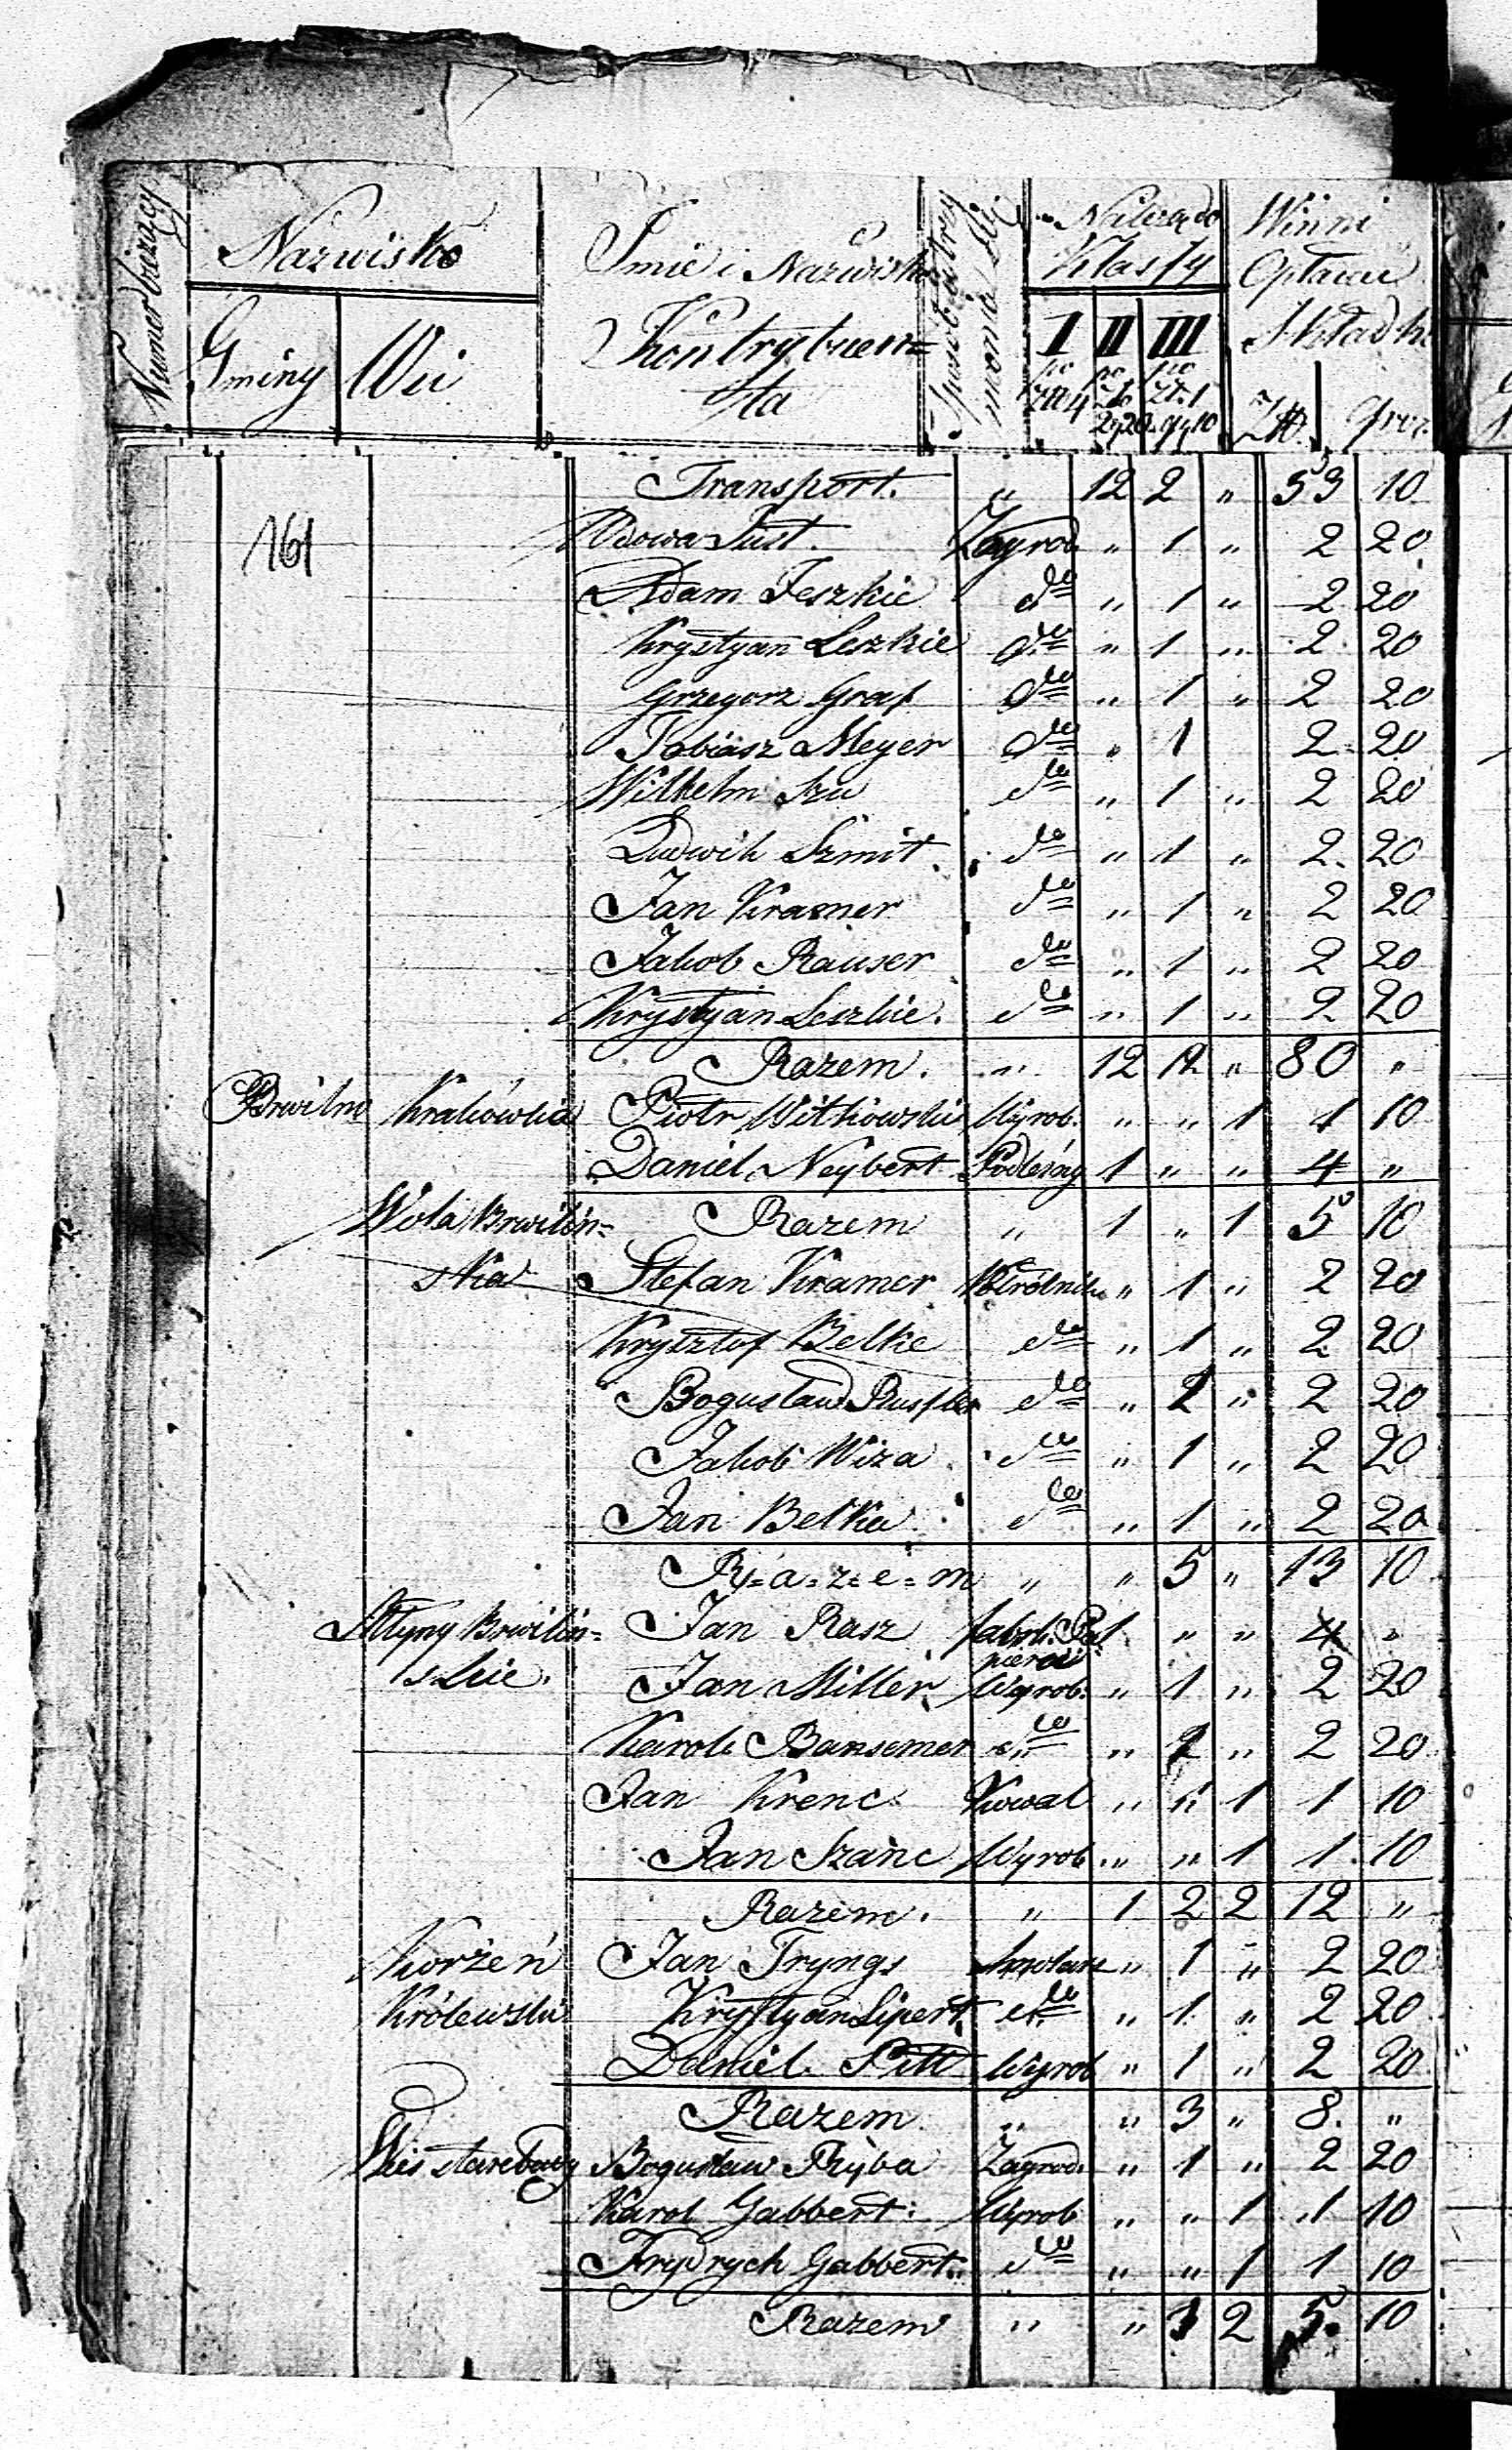 Numer bieżący
Nazwisko
Gminy Wsi
Imie i Nazwisko
Kontrybuen=
ta
Sposób utrzy
mania się
Należą do
Klassy
I II III
po złł 4 po zło 2 g 20 po Zł. 1 gr 10
Winni
Opłacać
Składki
Złł. Grosz
Transport. " 12 2 " 53 10
161 Wdowa Just. Zagrod. " 1 " 2 20
Adam Jeszkie do " 1 " 2 20
Krystyan Leszkie do " 1 " 2 20
Grzegorz Graf do " 1 " 2 20
Tobiasz Meyer do " 1 2 20
Wilhelm Szu do " 1 " 2 20
Ludwik Szmit. do " 1 " 2. 20
Jan Kramer do " 1 " 2 20
Jakob Rauser do " 1 " 2 20
Krystyan Leszkie. do " 1 " 2 20
Razem. " 12 12 " 80 "
Brwilno Krakówka Piotr Witkowski Wyrob. " " 1 1 10
Daniel Neybert Podleśny 1 " " 4 "
Wola Brwilin= Razem " 1 " 1 5 10
ska Stefan Kramer Półrolnik " 1 " 2 20
Krysztof Belke do " 1 " 2 20
Bogusław do " 1 " 2 20
Jakob Wiza do " 1 " 2 20
Jan Belka do " 1 " 2 20
R=a=z=e=m " " 5 " 13 10
Młyny Brwilin= Jan Rasz fabr. Pa 1 " " 4 "
pieru
skie. Jan Miller Wyrob. " 1 " 2 20
Karol Bansemer do " 1 " 2 20
Jan Krenc Kowal " " 1 1 10
Jan Szanc Wyrob. " " 1 1 10
Razem. " 1 2 2 12 "
Korzeń Jan Tryngs Smolarz " 1 " 2 20
Królewski Krystyan Lipert do " 1 " 2 20
Daniel Pitt Wyrob " 1 " 2 20
Razem " " 3 " 8. "
Wieś Bogusław Ryba Zagrod. " 1 " 2 20
Karol Gabbert Wyrob " " 1 1 10
Frydrych Gabbert. do " " 1 1 10
Razem " " 1 2 5. 10